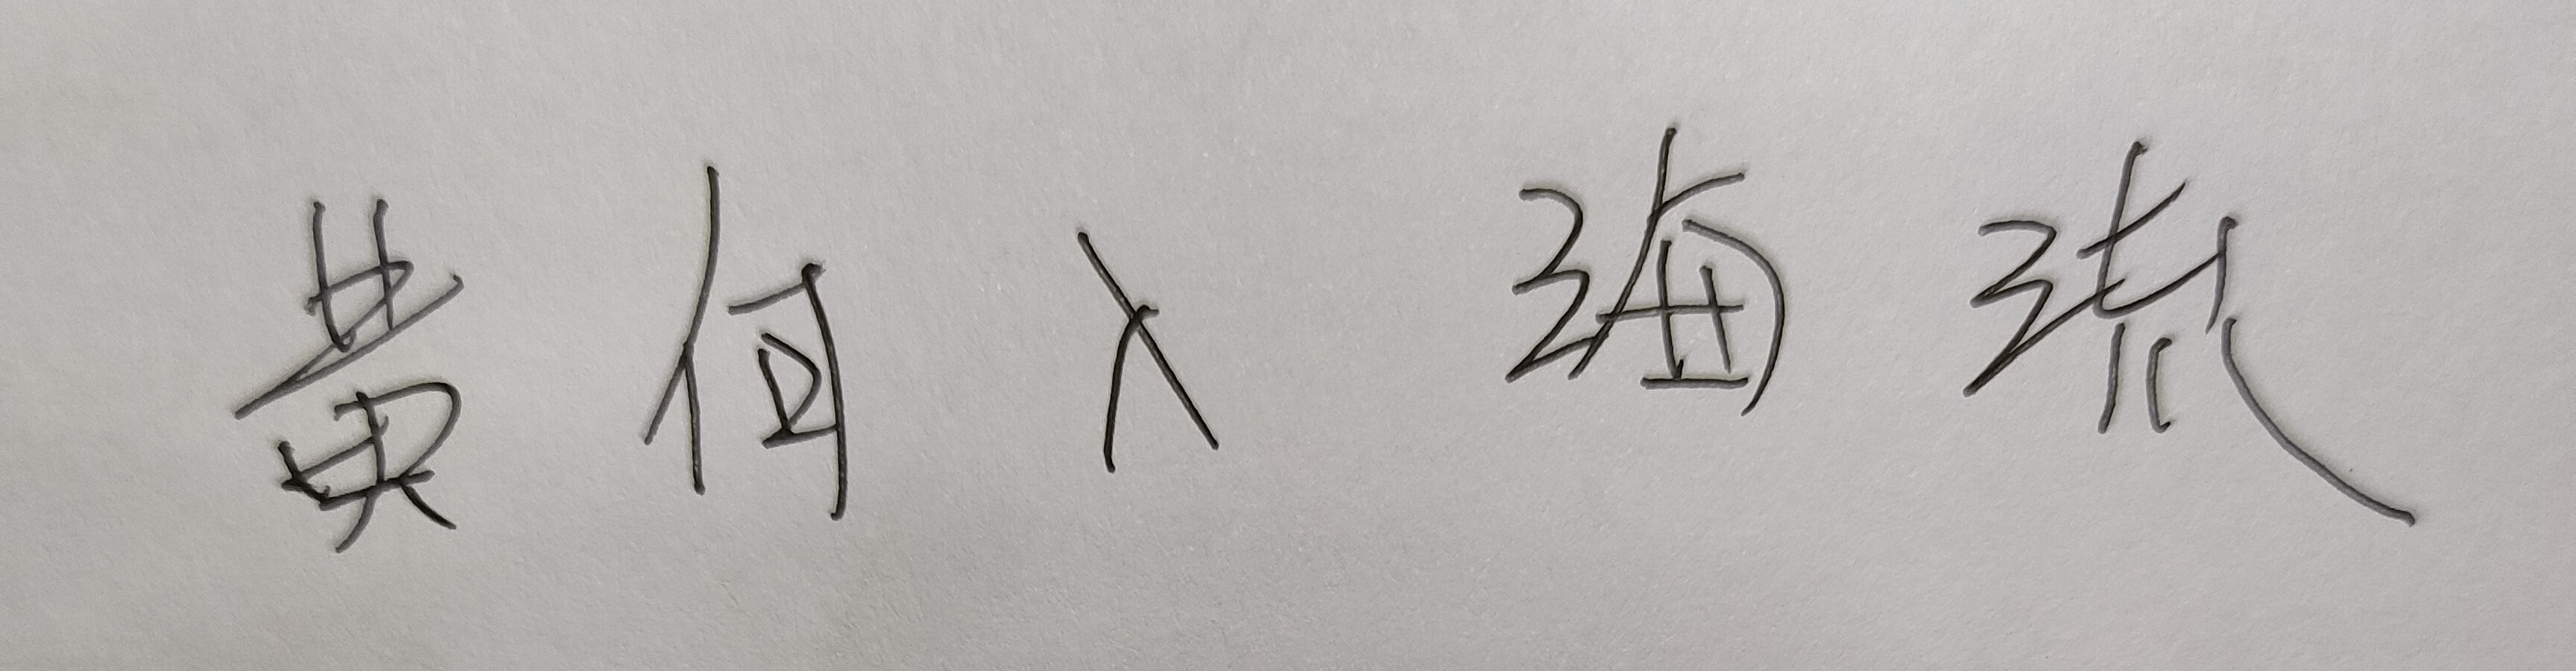 黄何入海流